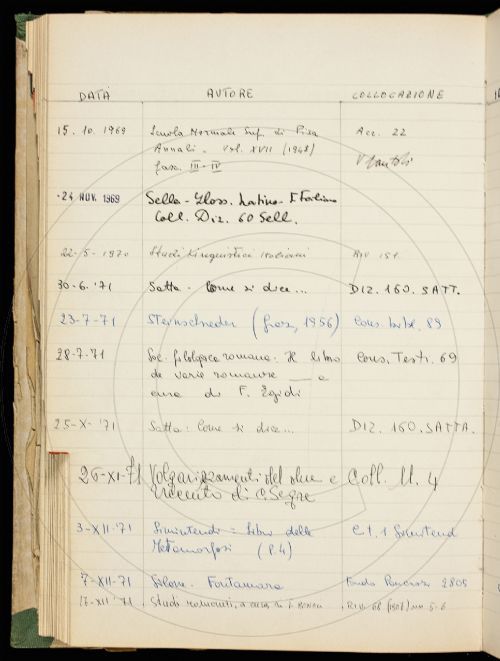 DATA AUTORE COLLOCAZIONE
15. 10. 1969 Scuola Normale Sup. di Pisa Acc. 22
Annali - Vol. XVII (1948)
fasc. III - IV
-24 NOV. 1969 Sella - Gloss. Latino-
Coll. Diz. 60 Sell.
22-5-1970 Studi Linguistici Italiani RIV 151
30-6-'71 Satta - Come si dice... DIZ. 160. SATT.
23-7-71 (Graz, 1956) Cons. 89
28-7-71 Soc. filologica romana: Il libro Cons. Test. 69
de varie romanze e
cura di F. Egidi
25-X-'71 Satta: Come si dice... DIZ. 160. SATTA.
26-XI-71 Volgarizzamenti del due e Coll. M. 4
trecento di C. Segre
3-XII-71 Simintendi: Libro delle C t. 1 Simintend
Metamorfosi (P. 4)
7-XII-71 Silone - Fontamara Fondo Pancrazi 2805
17-XII-'71 Studi romanzi, a cura di RIV. 68